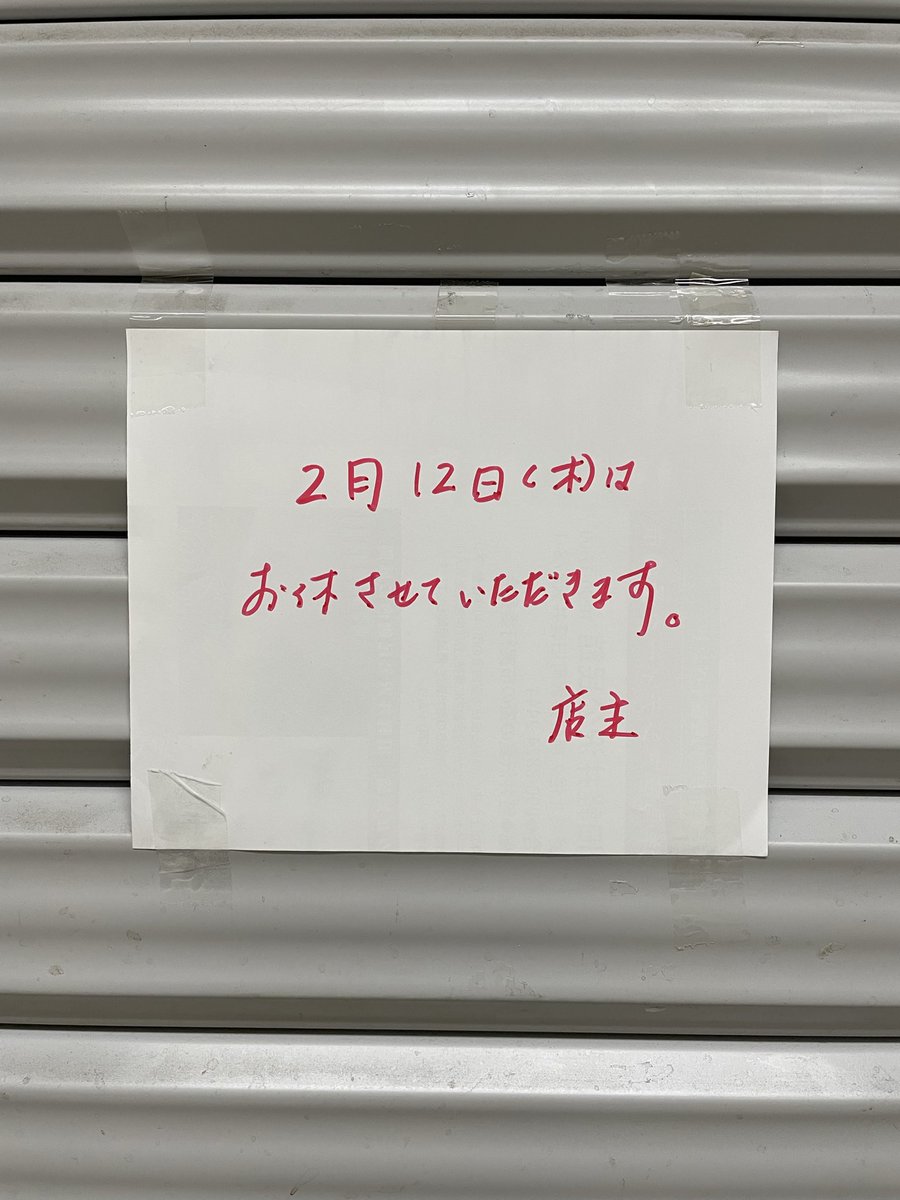 2月12日(木)は
お休させていただきます。
店主